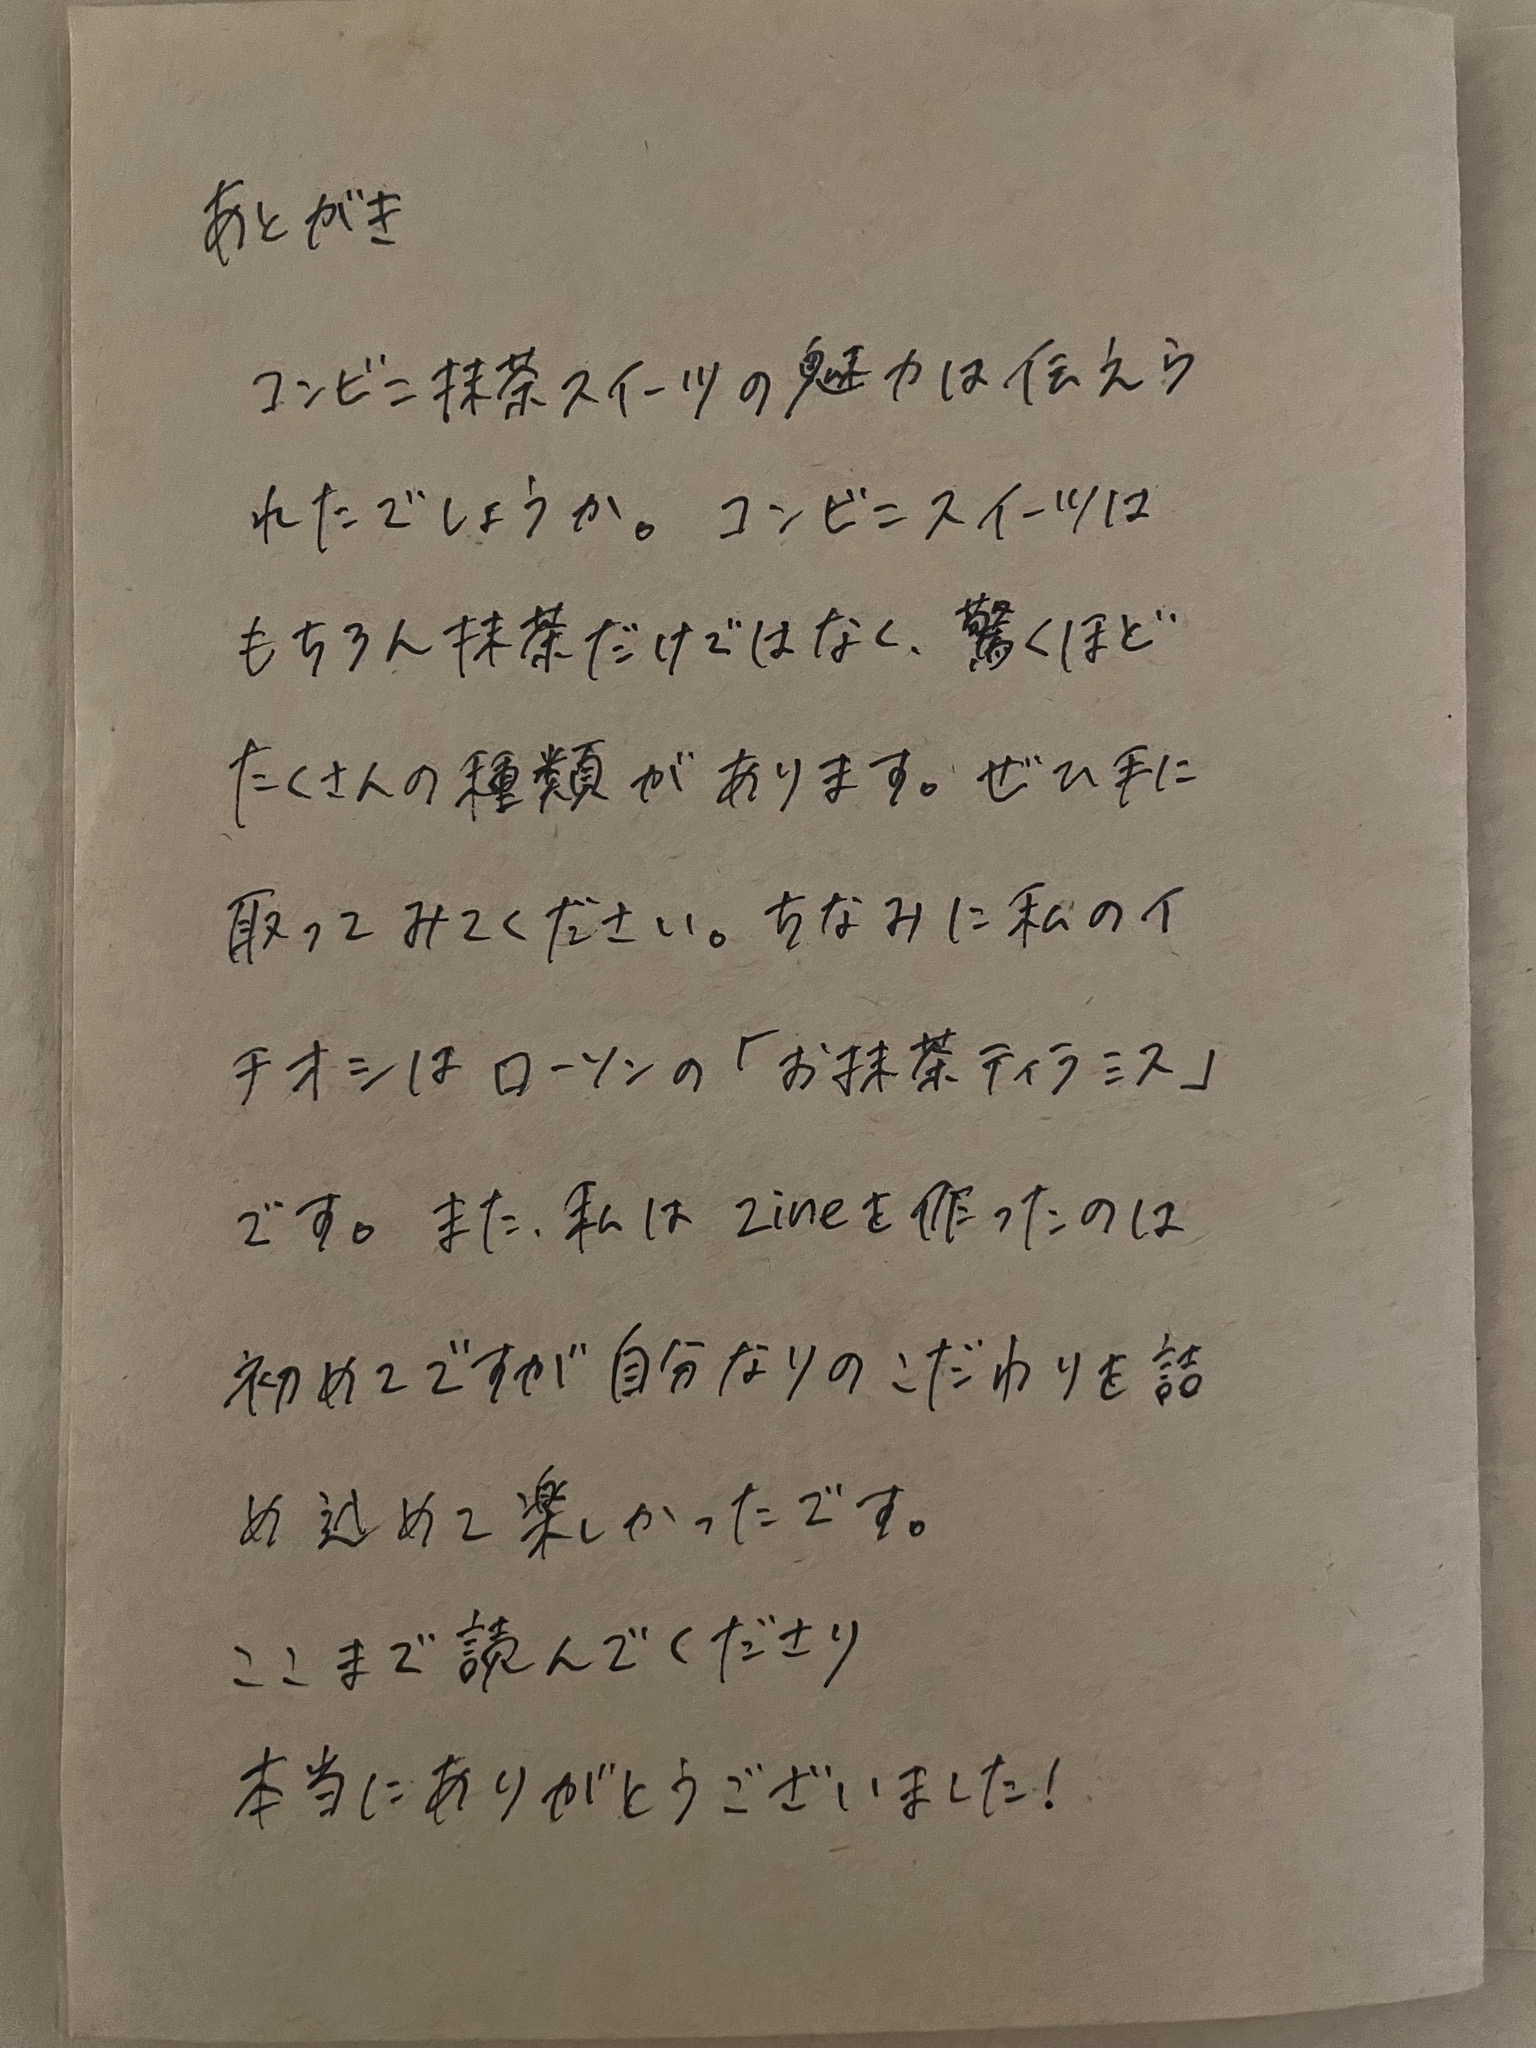 あとがき
コンビニ抹茶スイーツの魅力は伝えら
れたでしょうか。コンビニスイーツは
もちろん抹茶だけではなく、驚くほど
たくさんの種類があります。ぜひ手に
取ってみてください。ちなみに私のイ
チオシはローソンの「お抹茶ティラミス」
です。また、私はzineを作ったのは
初めてですが自分なりのこだわりを詰
め込めて楽しかったです。
ここまで読んでくださり
本当にありがとうございました!